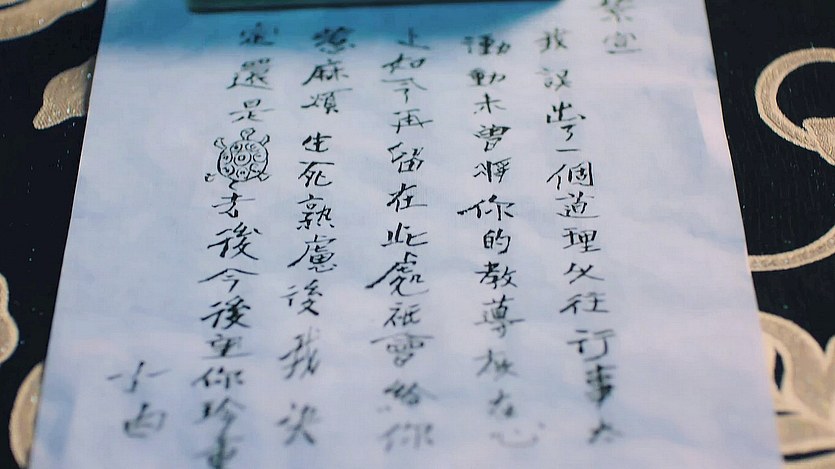 紫宣
我誤出了一個道理以往行事太
衝動未曾將你的教導放在心
上如今再留在此處祇會給你
惹麻煩生死熟慮後我決
定還是後今後望你珍重
小白